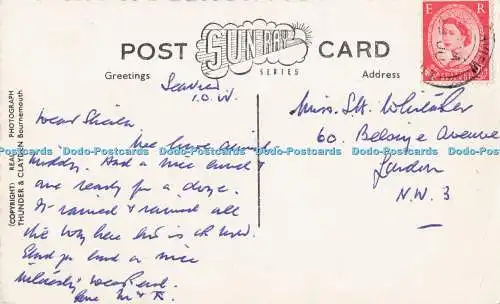 POST CARD
SUN RAY
SERIES
Greetings
Address
E R
(COPYRIGHT) REAL PHOTOGRAPH
THUNDER & CLAYDEN Bournemouth
Seaview
I.O.W.
Dear Sheila
We have arrived
. Had a nice lunch &
are ready for a doze.
It rained & rained all
the way here but is OK now.
Glad you had a nice
Love M & R.
Miss. S.H. Whitaker
60. Belsize Avenue
London
N.W. 3
Dodo-Postcards Dodo-Postcards Dodo-Postcards Dodo-Postcards Dodo-Postcards Dodo-Postcards